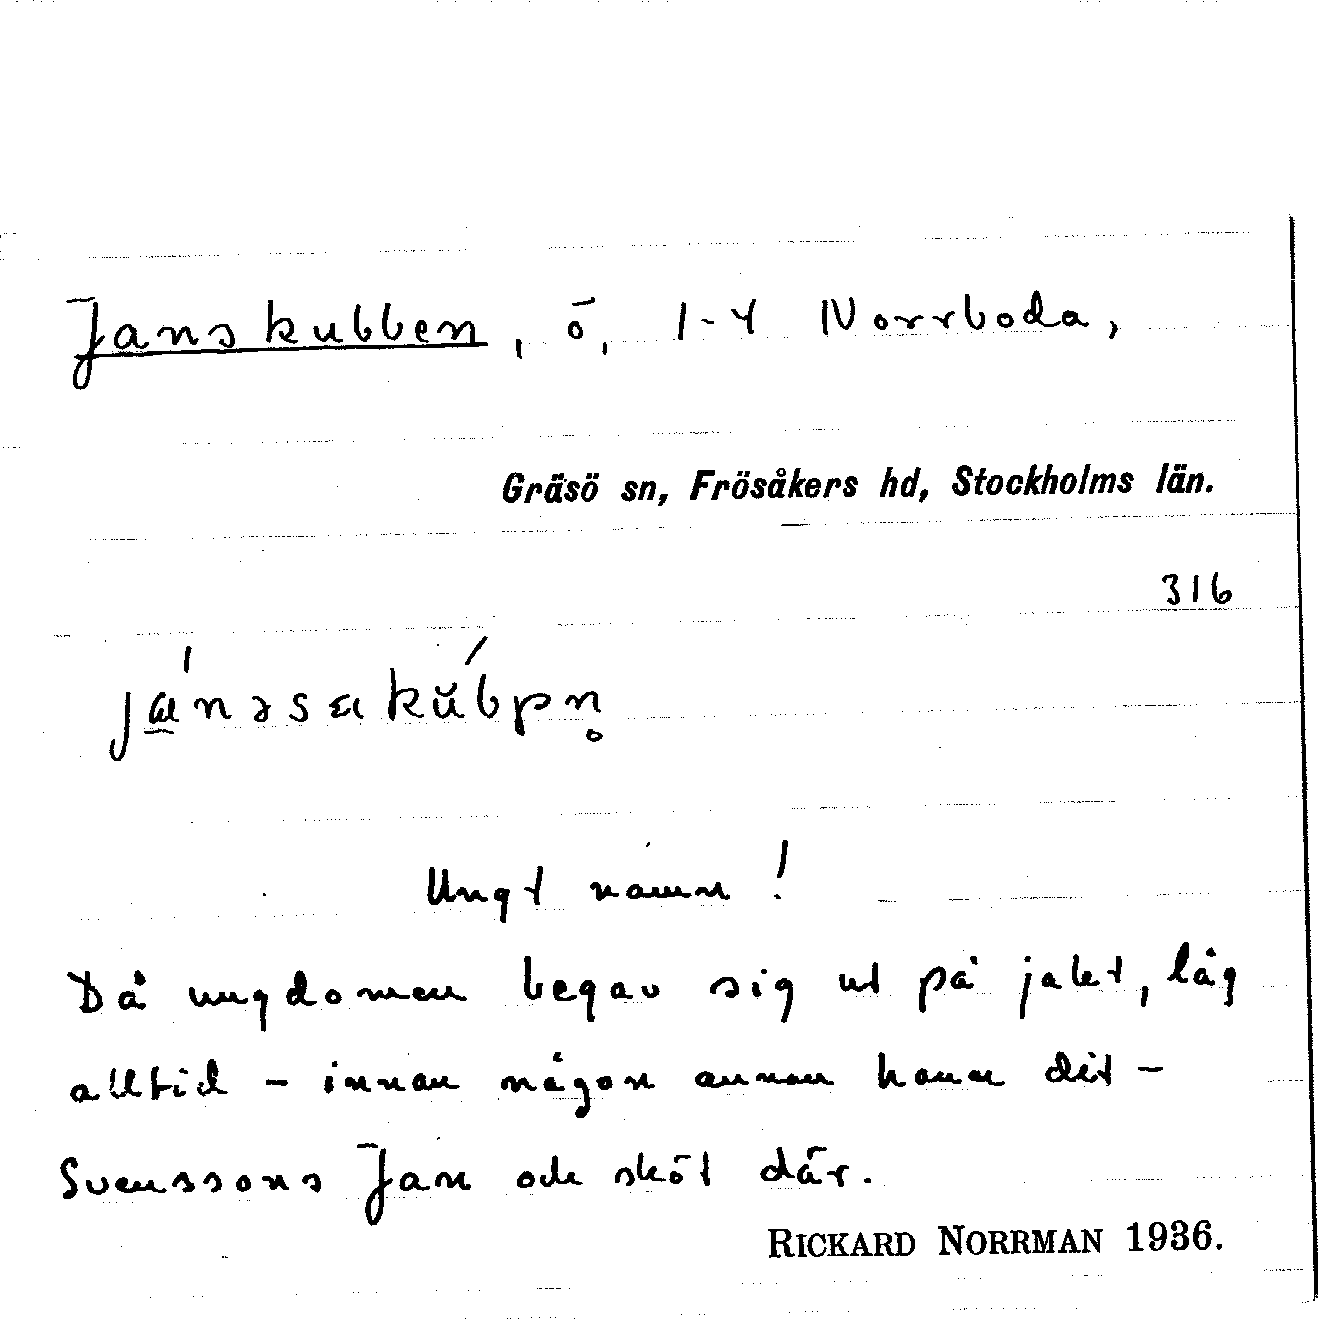 Janskubben, ö, 1-4 Norrboda,
Gräsö sn, Frösåkers hd, Stockholms län.
316
Ungt namn!
Då ungdomen begav sig ut på jakt, låg
alltid - innan någon annan hann dit -
Svenssons Jan och sköt där.
RICKARD NORRMAN 1936.